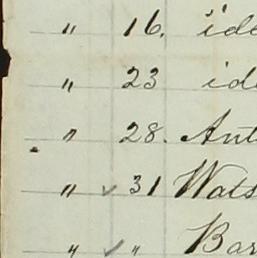 " 16. ide
" 23 ide
" 28. Ant
" ✓ 31 Wats
" ✓ " Bar